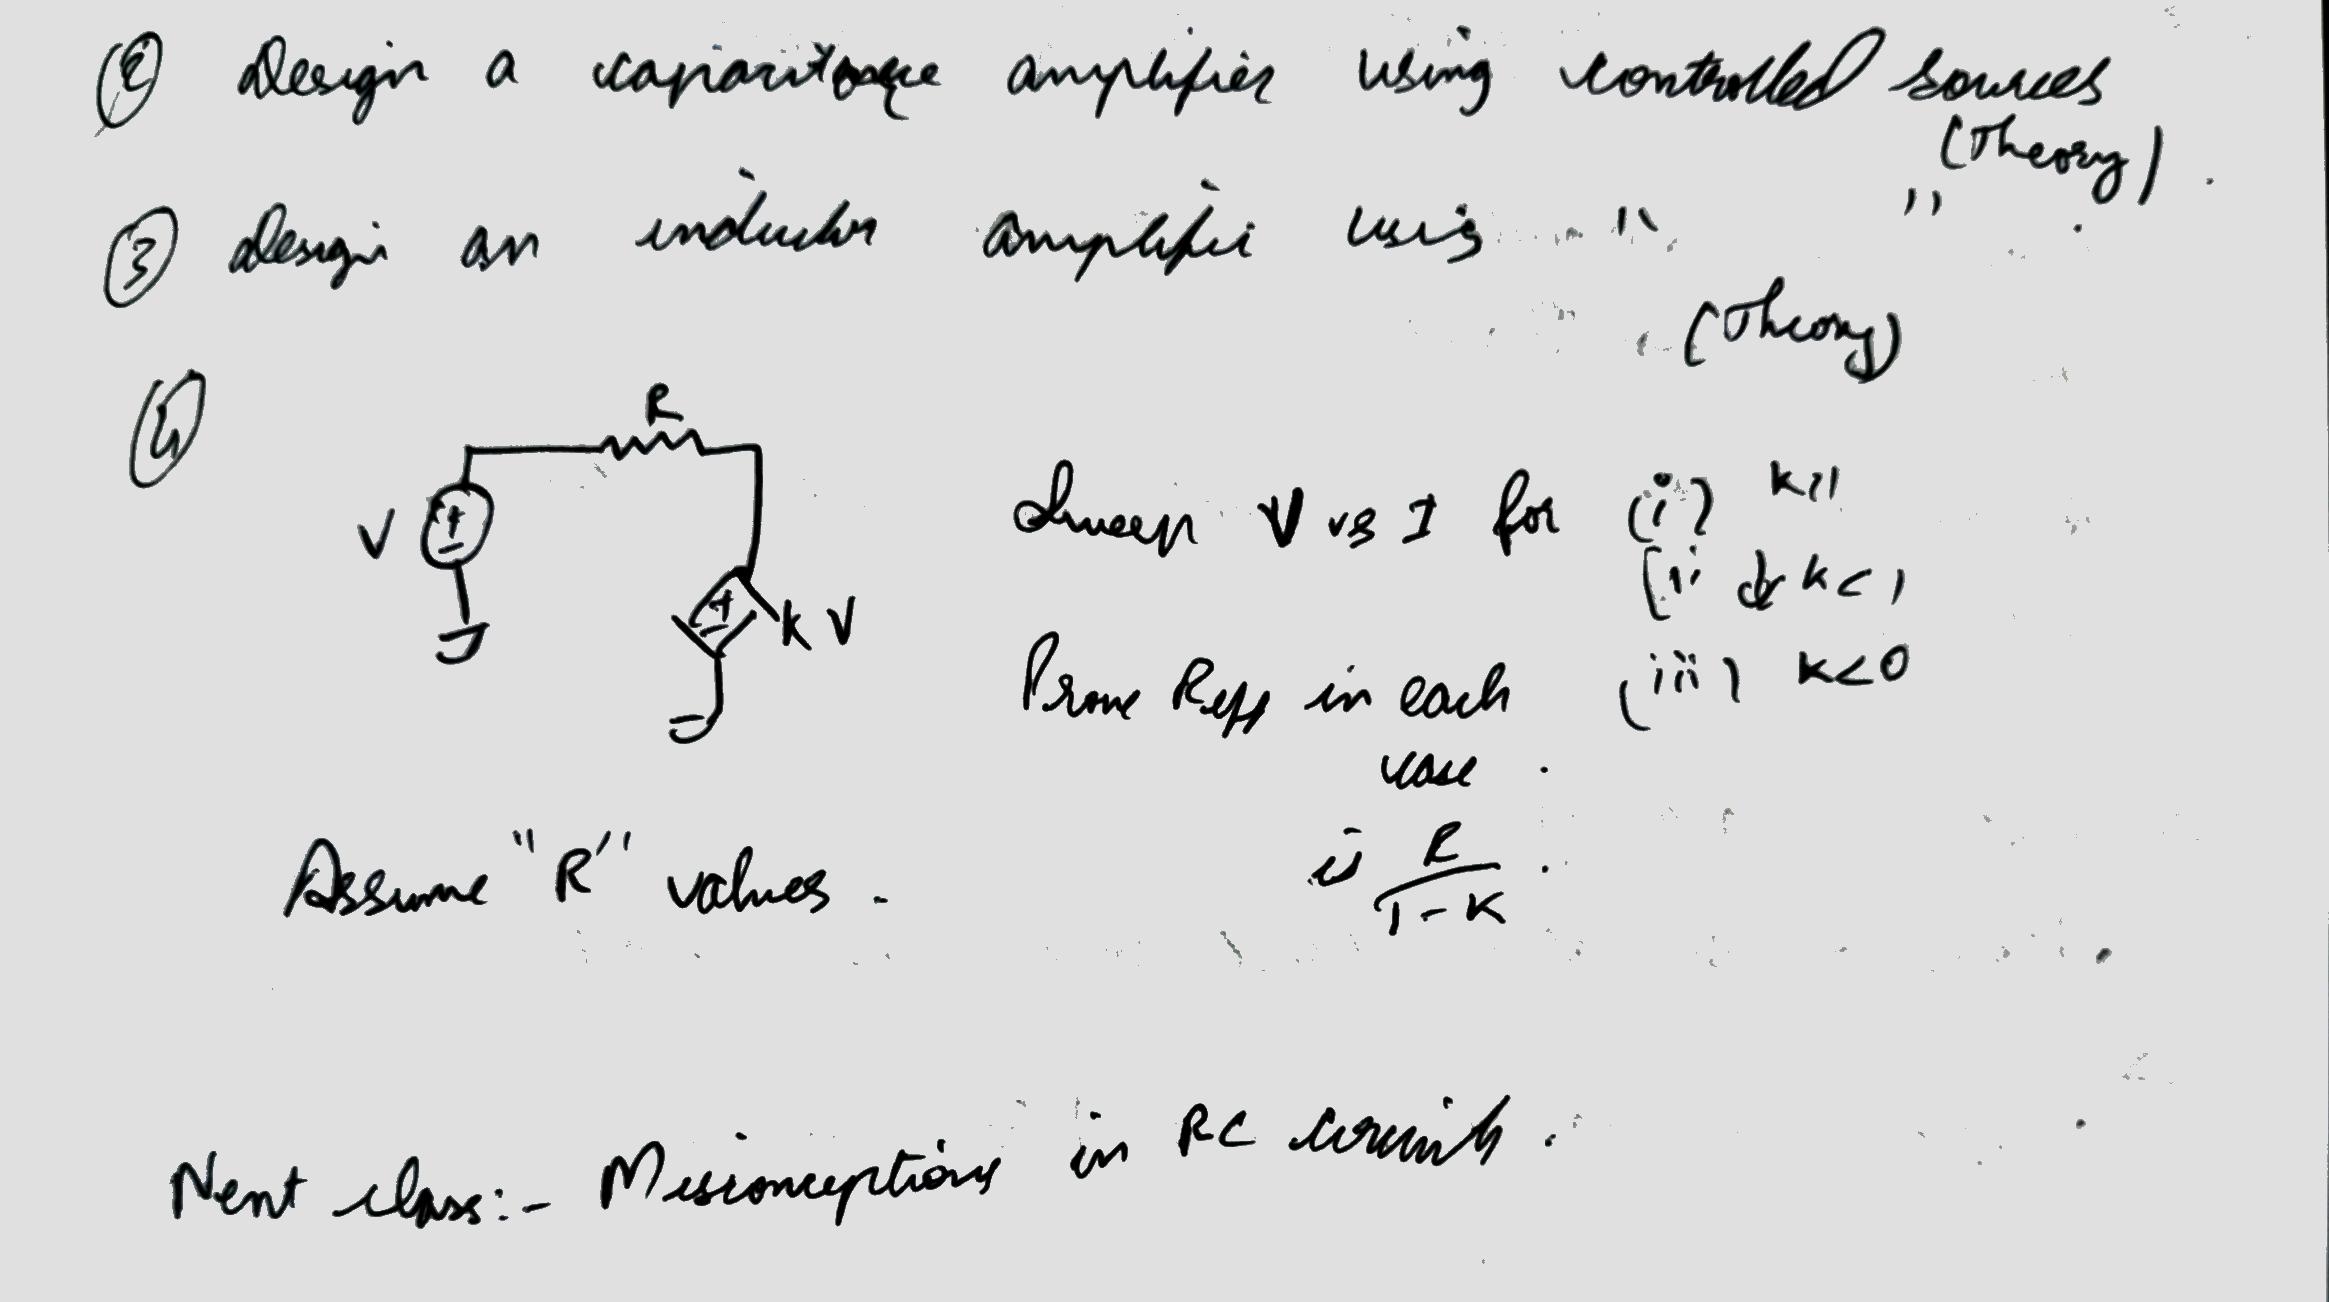 ② Design a capacitance amplifier using controlled sources
(Theory).
③ design an inductor amplifier using " " .
(Theory)
④
R
V
+
-
+
-
KV
Sweep V vs I for (i) K>1
(ii) K<1
(iii) K<0
Prove Reff in each
case .
is R/(1-K) .
Assume "R" values .
Next class:- Misconceptions in RC circuits .